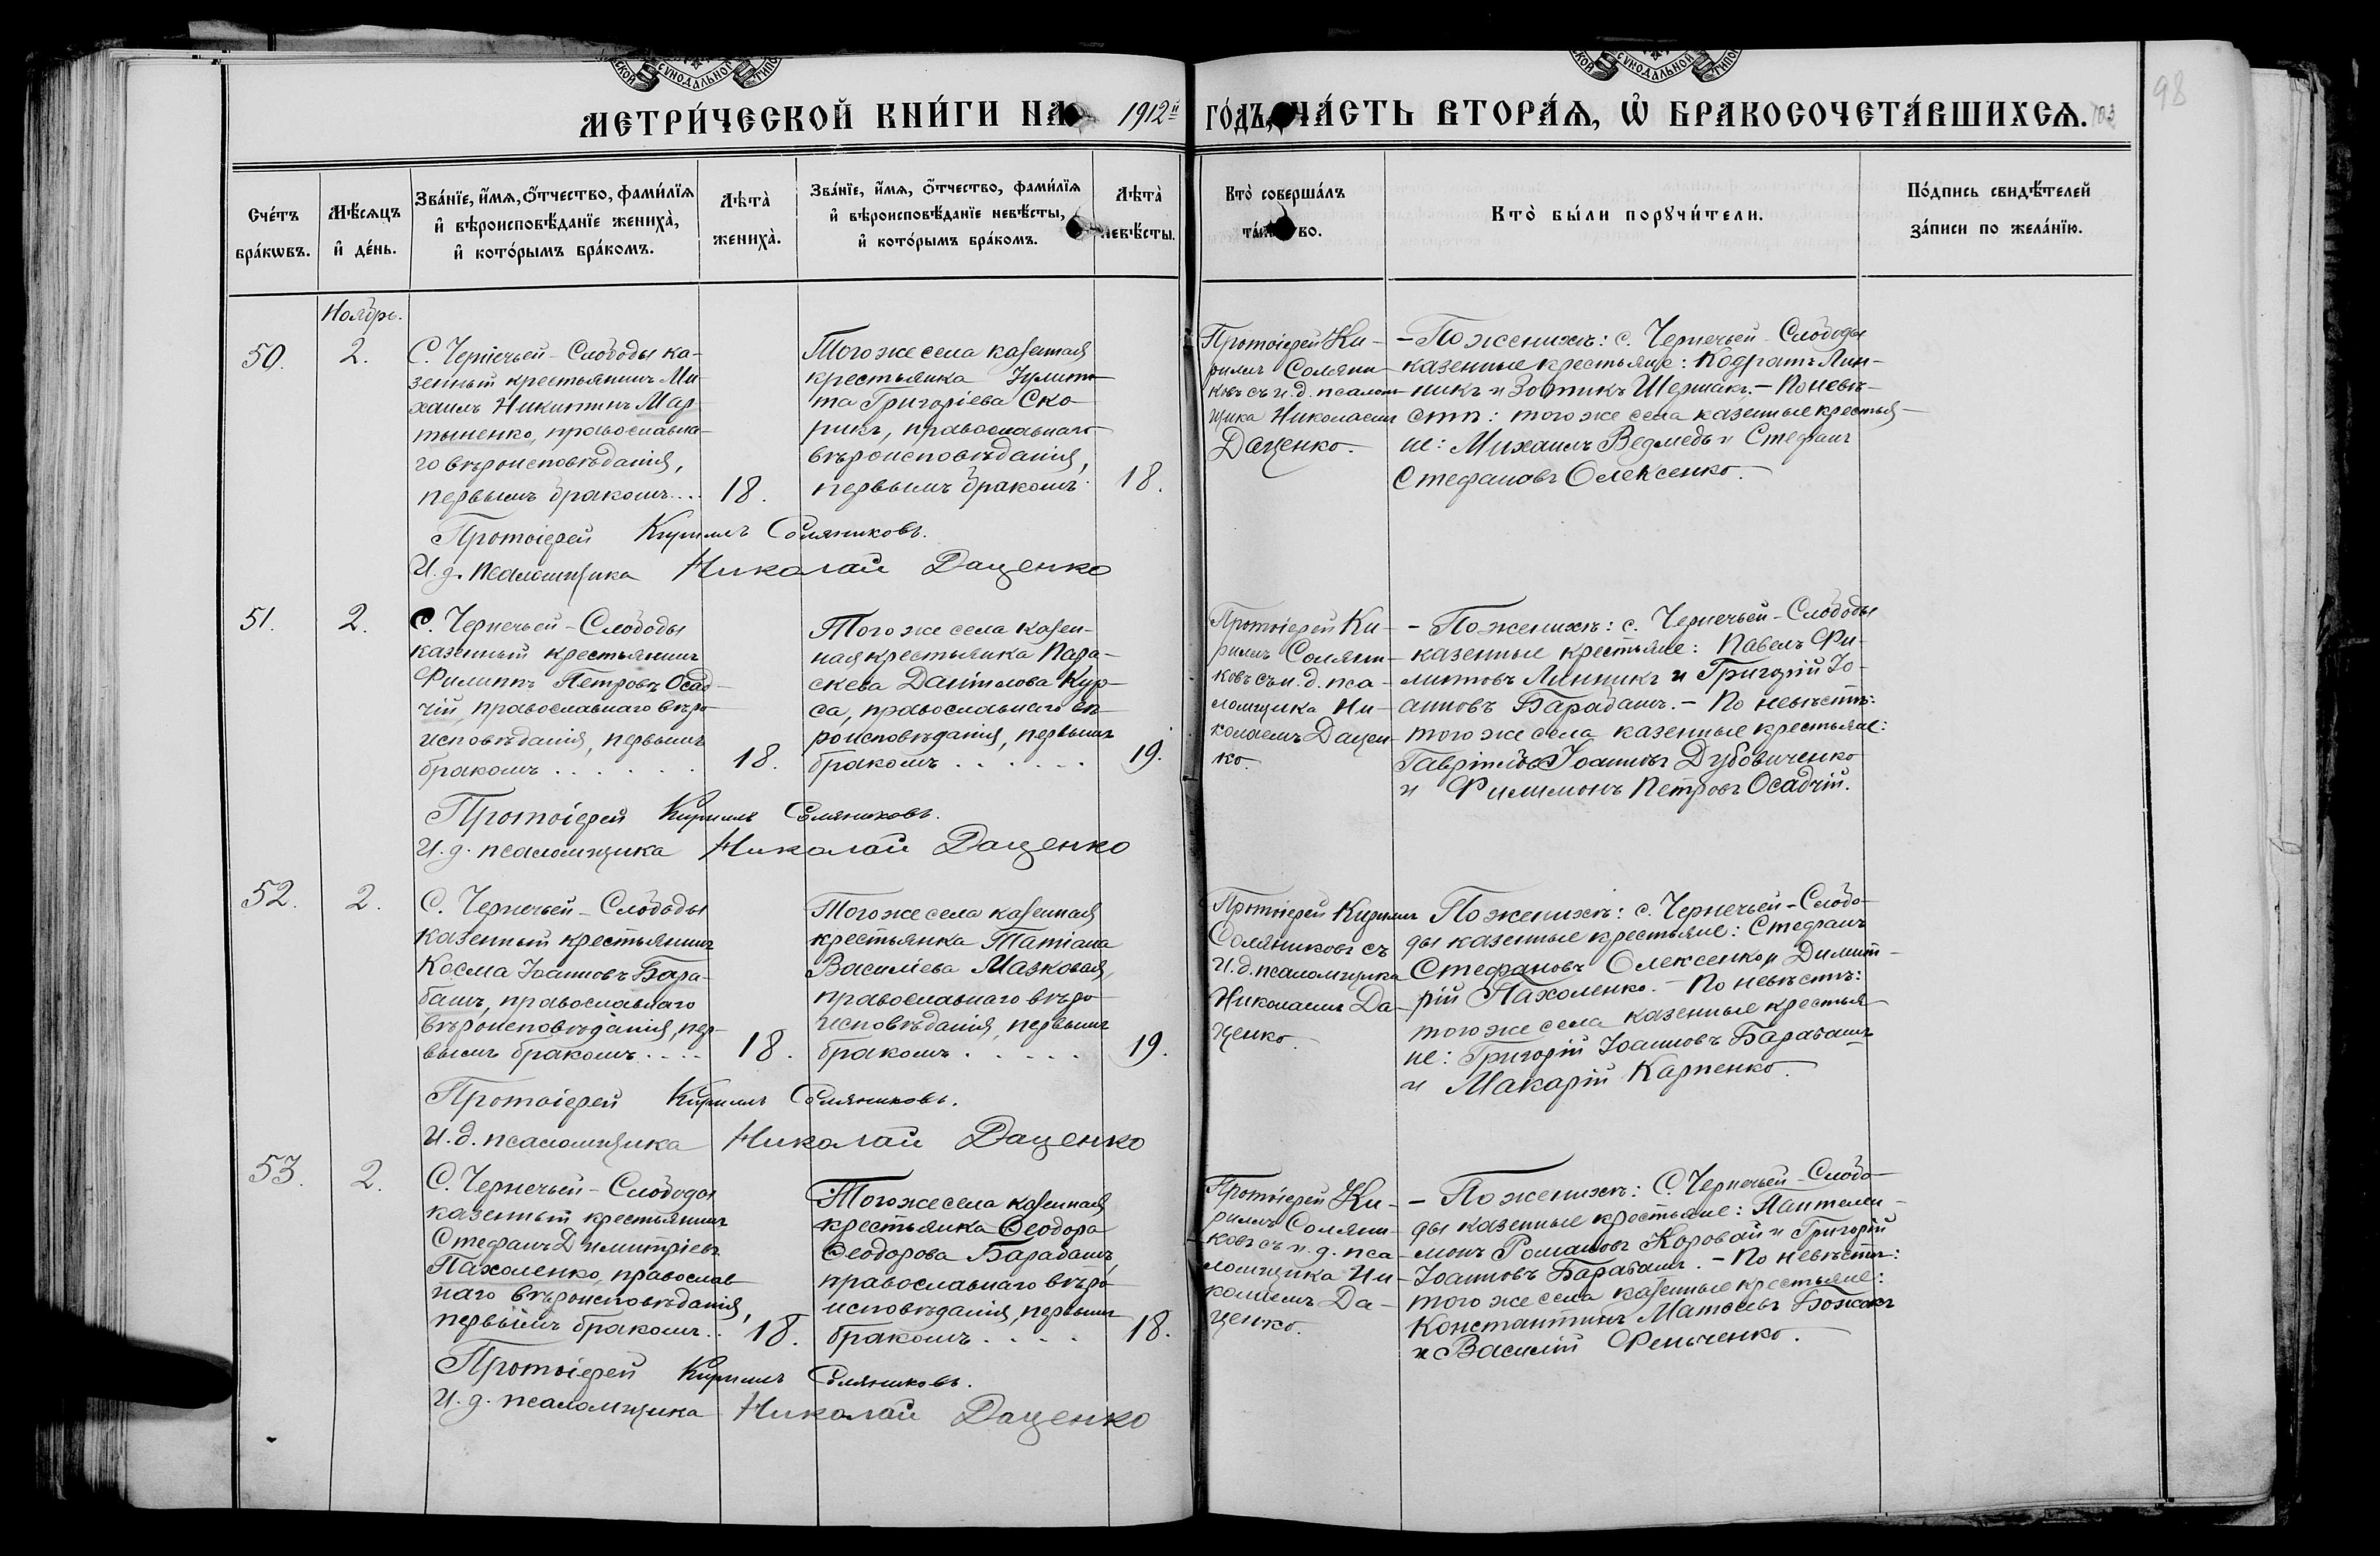 СѴНОДАЛЬНОЙ
СѴНОДАЛЬНОЙ
98
МЕТРИ́ЧЕСКОЙ КНИ́ГИ НА 1912й ГО́ДЪ, ЧА́СТЬ ВТОРА́Ѧ, Ѽ БРАКОСОЧЕТА́ВШИХСѦ. 103
Сче́тъ бра́кѡвъ.
Мѣ́сѧцъ и҆ де́нь.
Зва́нїе, и҆́мѧ, ѻ҆́тчество, фами́лїѧ
и҆ вѣроисповѣ́данїе жениха̀,
и҆ кото́рымъ бра́комъ.
Лѣ́та̀ жениха̀.
Зва́нїе, и҆́мѧ, ѻ҆́тчество, фами́лїѧ
и҆ вѣроисповѣ́данїе невѣ́сты,
и҆ кото́рымъ бра́комъ.
Лѣ́та̀ невѣ́сты.
Кто̀ соверша́лъ
та́инство.
Кто̀ бы́ли порꙋчи́тели.
По́дпись свидѣ́телей
за́писи по жела́нїю.
Ноябрь.
50.
2.
С. Чернечьей-Слободы ка-
зенный крестьянинъ Ми-
хаилъ Никитинъ Мар-
тыненко, православна-
го вѣроисповѣданія,
первымъ бракомъ...
18.
Того же села казенная
крестьянка Іулит-
та Григоріева Ско-
рикъ, православнаго
вѣроисповѣданія,
первымъ бракомъ.
18.
Протоіерей Ки-
риллъ Соляни-
ковъ съ и. д. псалом-
щика Николаемъ
Даценко.
- По женихѣ: с. Чернечьей-Слободы
казенные крестьяне: Кодратъ Лин-
никъ и Зотикъ Шершакъ. - По невѣ-
стѣ: того же села казенные крестья-
не: Михаилъ Ведмедь и Стефанъ
Стефановъ Олексенко.
Протоіерей Кириллъ Соляниковъ.
И. д. псаломщика Николай Даценко
51.
2.
С. Чернечьей-Слободы
казенный крестьянинъ
Филиппъ Петровъ Осад-
чій, православнаго вѣро-
исповѣданія, первымъ
бракомъ......
18.
Того же села казен-
ная крестьянка Пара-
скева Даніилова Кур-
са, православнаго вѣ-
роисповѣданія, первымъ
бракомъ......
19.
Протоіерей Ки-
риллъ Соляни-
ковъ съ и. д. пса-
ломщика Ни-
колаемъ Дацен-
ко.
- По женихѣ: с. Чернечьей-Слободы
казенные крестьяне: Павелъ Фи-
липповъ Линникъ и Григорій Іо-
анновъ Барабашъ. - По невѣстѣ:
того же села казенные крестьяне:
Гавріилъ Іоанновъ Дубовиченко
и Филимонъ Петровъ Осадчій.
Протоіерей Кириллъ Соляниковъ.
И. д. псаломщика Николай Даценко
52.
2.
С. Чернечьей-Слободы
казенный крестьянинъ
Косма Іоанновъ Бара-
башъ, православнаго
вѣроисповѣданія, пер-
вымъ бракомъ....
18.
Того же села казенная
крестьянка Татіана
Василіева Мазковая,
православнаго вѣро-
исповѣданія, первымъ
бракомъ.....
19.
Протоіерей Кириллъ
Соляниковъ съ
и. д. псаломщика
Николаемъ Да-
ценко.
По женихѣ: с. Чернечьей-Слобо-
ды казенные крестьяне: Стефанъ
Стефановъ Олексенко и Димит-
рій Пахоленко. - По невѣстѣ:
того же села казенные крестья-
не: Григорій Іоанновъ Барабашъ
и Макарій Карпенко.
Протоіерей Кириллъ Соляниковъ.
И. д. псаломщика Николай Даценко
53.
2.
С. Чернечьей-Слободы
казенный крестьянинъ
Стефанъ Димитріевъ
Пахоленко, православ-
наго вѣроисповѣданія,
первымъ бракомъ..
18.
Того же села казенная
крестьянка Ѳеодора
Ѳеодорова Барабашъ,
православнаго вѣро-
исповѣданія, первымъ
бракомъ....
18.
Протоіерей Ки-
риллъ Соляни-
ковъ съ и. д. пса-
ломщика Ни-
колаемъ Да-
ценко.
- По женихѣ: С. Чернечьей-Слобо-
ды казенные крестьяне: Пантелеи-
монъ Романовъ Коровай и Григорій
Іоанновъ Барабашъ. - По невѣстѣ:
того же села казенные крестьяне:
Константинъ Матѳеевъ Божокъ
и Василій Феньченко.
Протоіерей Кириллъ Соляниковъ.
И. д. псаломщика Николай Даценко